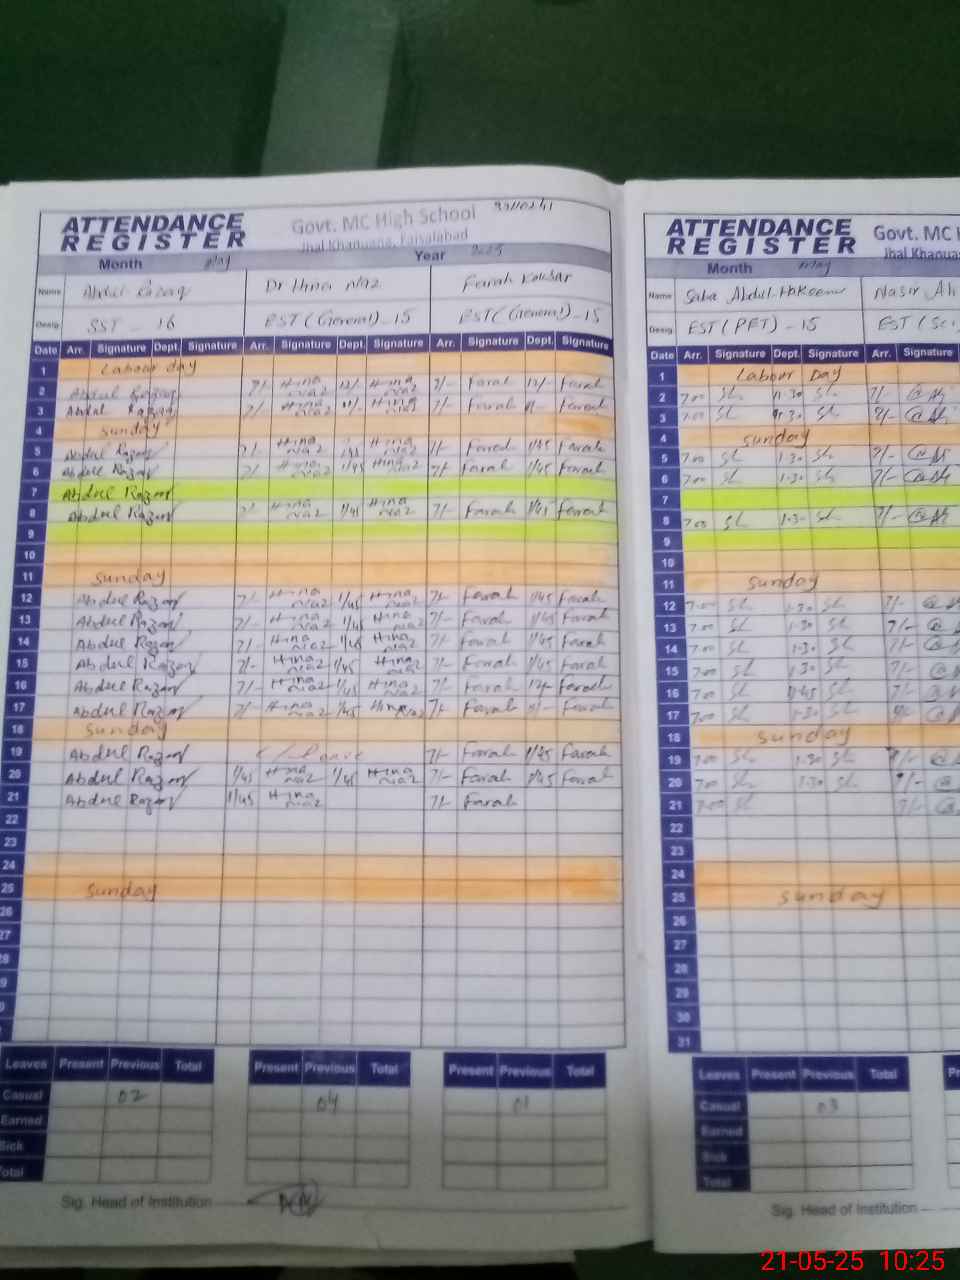 33110241
ATTENDANCE REGISTER
Govt. MC High School
Jhal Khanuana, Faisalabad
Month May Year 2025
Name Abdul Razaq Dr Hina niaz Farah Kousar
Desig. SST - 16 EST (General) - 15 EST (General) - 15
Date Arr. Signature Dept. Signature Arr. Signature Dept. Signature Arr. Signature Dept. Signature
1 Labour day
2 Abdul Razaq 7/- Hina niaz 12/- Hina niaz 7/- Farah 12/- Farah
3 Abdul Razaq 7/- Hina niaz Hina niaz 7/- Farah Farah
4 Sunday
5 Abdul Razaq 7/- Hina niaz 1/45 Hina niaz 7/- Farah 1/45 Farah
6 Abdul Razaq 7/- Hina niaz 1/45 Hina niaz 7/- Farah 1/45 Farah
7 Abdul Razaq
8 Abdul Razaq 7/- Hina niaz 1/45 Hina niaz 7/- Farah 1/45 Farah
9
10
11 Sunday
12 Abdul Razaq 7/- Hina niaz 1/45 Hina niaz 7/- Farah 1/45 Farah
13 Abdul Razaq 7/- Hina niaz 1/45 Hina niaz 7/- Farah 1/45 Farah
14 Abdul Razaq 7/- Hina niaz 1/45 Hina niaz 7/- Farah 1/45 Farah
15 Abdul Razaq 7/- Hina niaz 1/45 Hina niaz 7/- Farah 1/45 Farah
16 Abdul Razaq 7/- Hina niaz 1/45 Hina niaz 7/- Farah 12/- Farah
17 Abdul Razaq 7/- Hina niaz 1/45 Hina niaz 7/- Farah Farah
18 Sunday
19 Abdul Razaq C/Leave 7/- Farah 1/45 Farah
20 Abdul Razaq 1/45 Hina niaz 1/45 Hina niaz 7/- Farah 1/45 Farah
21 Abdul Razaq 1/45 Hina niaz 7/- Farah
22
23
24
25 Sunday
26
27
28
9
Leaves Present Previous Total Present Previous Total Present Previous Total
Casual 02 04 01
Earned
Sick
Total
Sig. Head of Institution
ATTENDANCE REGISTER
Govt. MC H
Jhal Khanua
Month May
Name Saba Abdul Hakeem Nasir Ali
Desig. EST (PET) - 15 EST (Sci
Date Arr. Signature Dept. Signature Arr. Signature
1 Labour Day
2 7:00 1:30 7/-
3 7:00 1:30 7/-
4 Sunday
5 7:00 1:30 7/-
6 7:00 1:30 7/-
7
8 7:00 1:30 7/-
9
10
11 Sunday
12 7:00 1:30 7/-
13 7:00 1:30 7/-
14 7:00 1:30 7/-
15 7:00 1:30 7/-
16 7:00 7/-
17 7:00 1:30
18 Sunday
19 7:00 1:30 7/-
20 7:00 1:30 7/-
21 7:00 7/-
22
23
24
25 Sunday
26
27
28
29
30
31
Leaves Present Previous Total
Casual 03
Earned
Sick
Total
Sig. Head of Institution
21-05-25 10:25